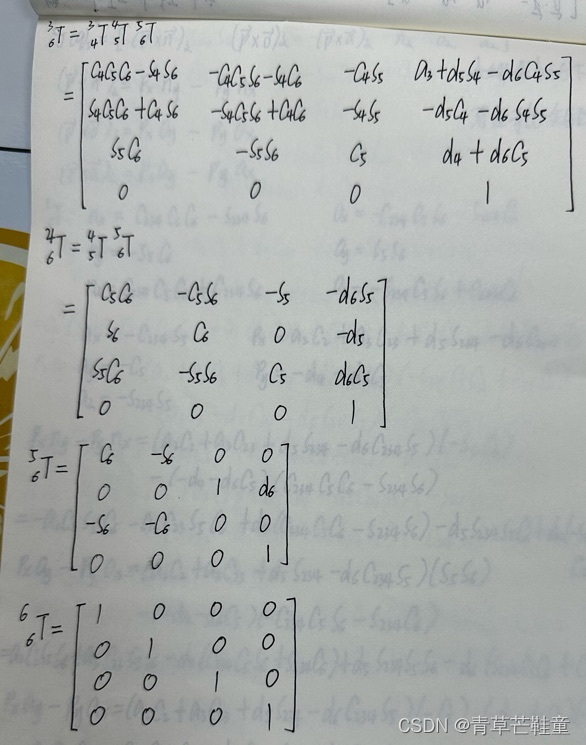 ³₆T = ³₄T ⁴₅T ⁵₆T
= [ C₄C₅C₆-S₄S₆ -C₄C₅S₆-S₄C₆ -C₄S₅ a₃+d₅S₄-d₆C₄S₅
S₄C₅C₆+C₄S₆ -S₄C₅S₆+C₄C₆ -S₄S₅ -d₅C₄-d₆S₄S₅
S₅C₆ -S₅S₆ C₅ d₄+d₆C₅
0 0 0 1 ]
⁴₆T = ⁴₅T ⁵₆T
= [ C₅C₆ -C₅S₆ -S₅ -d₆S₅
S₆ C₆ 0 -d₅
S₅C₆ -S₅S₆ C₅ d₆C₅
0 0 0 1 ]
⁵₆T = [ C₆ -S₆ 0 0
0 0 1 d₆
-S₆ -C₆ 0 0
0 0 0 1 ]
⁶₆T = [ 1 0 0 0
0 1 0 0
0 0 1 0
0 0 0 1 ]
CSDN @青草芒鞋童